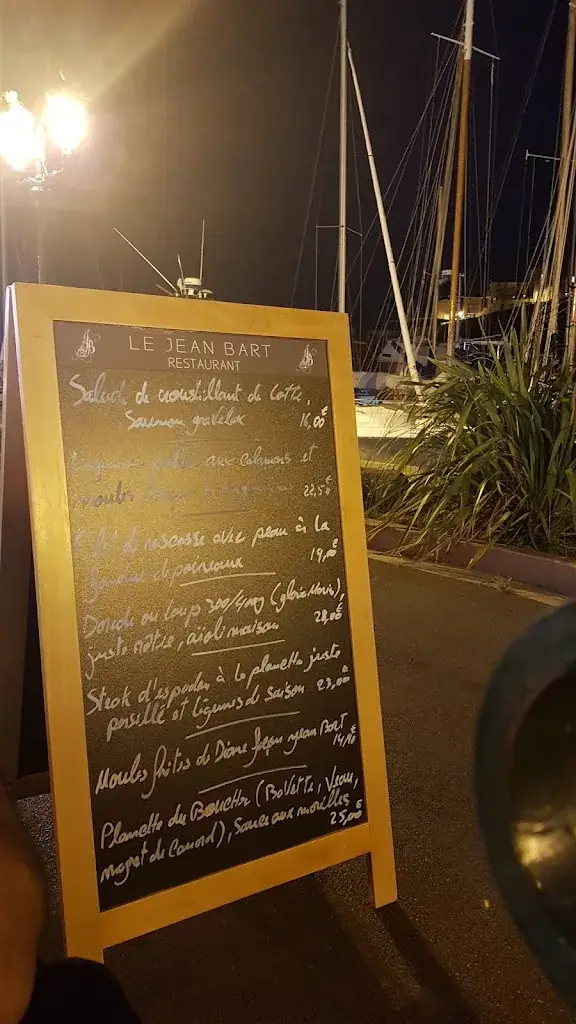 LE JEAN BART
RESTAURANT
Salade de croustillant de
Saumon gravelax 16,00€
aux calamars et
moules 22,5€
de rascasse avec peau à la
19,00€
Dorade ou loup 300/400g (gloria Maris),
juste rôtie, aïoli maison 28,00€
Steak d'espadon à la plancha juste
persillé et légumes de saison 23,00€
Moules frites de Diane façon Jean Bart
14,90€
Planchette du Boucher (Bavette, Veau,
magret de Canard), Sauce aux morilles
25,00€